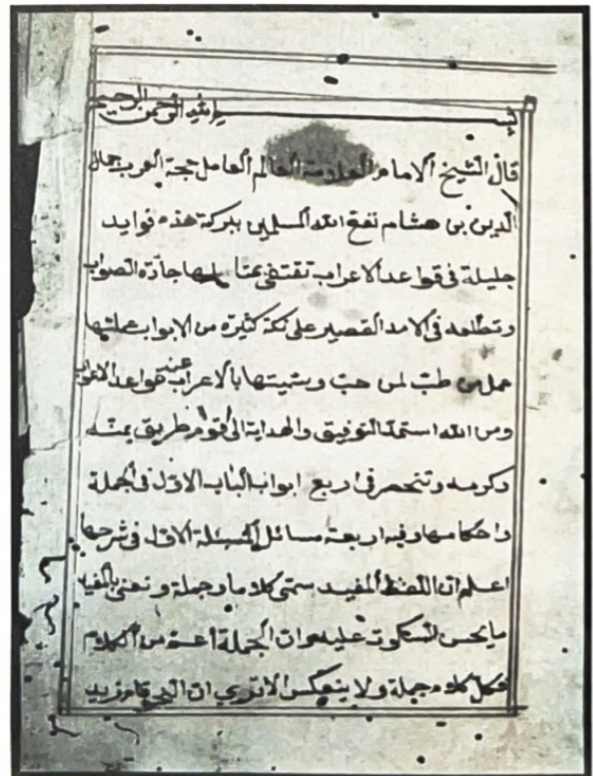 بسم الله الرحمن الرحيم
قال الشيخ الامام العلامة العالم العامل حجة العرب جمال
الدين بن هشام نفع الله المسلمين ببركة هذه فوايد
جليلة فى قواعد الاعراب تقتفى بمتأملها جادة الصواب
وتطلعه فى الامد القصير على نكة كثيرة من الابواب عملتها
عمل من طب لمن حب وسميتها بالاعراب عن قواعد الاعراب
ومن الله استمد التوفيق والهداية الى اقوم طريق بمنه
وكرمه وتنحصر فى اربع ابواب الباب الاول فى الجملة
واحكامها وفيه اربعة مسائل المسئلة الاولى فى شرحها
اعلم ان اللفظ المفيد سمى كلاما وجملة ونعنى بالمفيد
ما يحسن السكوت عليه وان الجملة اعم من الكلام
فكل كلام جملة ولا ينعكس الا ترى ان نحو قام زيد